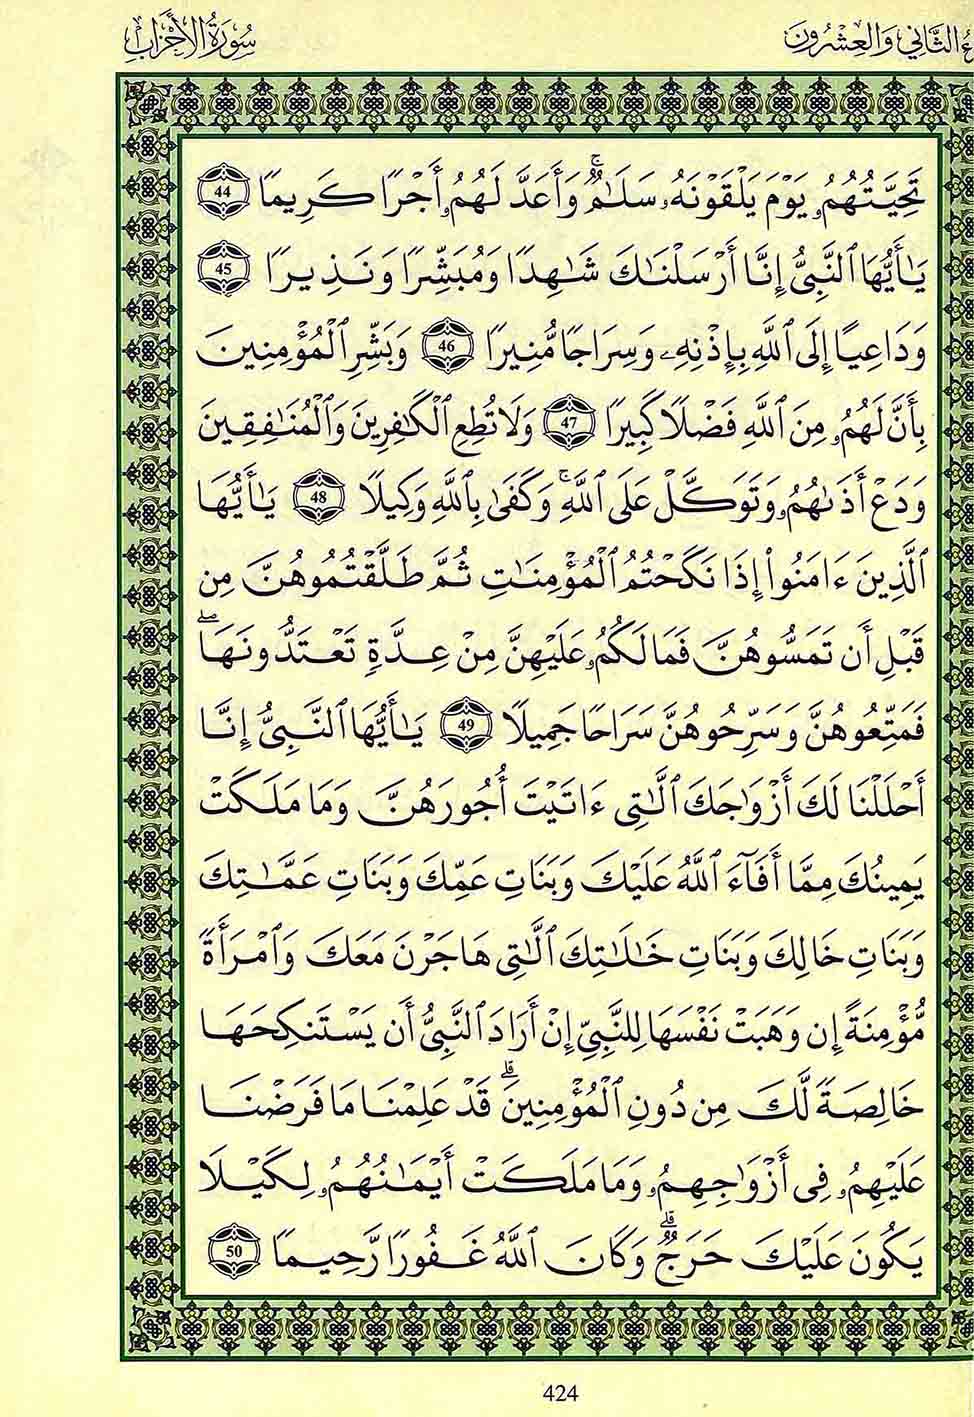 ءُ الثَّانِي وَالْعِشْرُونَ
سُورَةُ الأَحْزَابِ
تَحِيَّتُهُمُۥ يَوْمَ يَلْقَوْنَهُۥ سَلَٰمٌۚ وَأَعَدَّ لَهُمُۥ أَجْرًا كَرِيمًا 44
يَٰأَيُّهَا ٱلنَّبِىُّ إِنَّا أَرْسَلْنَٰكَ شَٰهِدًا وَمُبَشِّرًا وَنَذِيرًا 45
وَدَاعِيًا إِلَى ٱللَّهِ بِإِذْنِهِۦ وَسِرَاجًا مُّنِيرًا 46 وَبَشِّرِ ٱلْمُؤْمِنِينَ
بِأَنَّ لَهُمُۥ مِنَ ٱللَّهِ فَضْلًا كَبِيرًا 47 وَلَا تُطِعِ ٱلْكَٰفِرِينَ وَٱلْمُنَٰفِقِينَ
وَدَعْ أَذَىٰهُمُۥ وَتَوَكَّلْ عَلَى ٱللَّهِۚ وَكَفَىٰ بِٱللَّهِ وَكِيلًا 48 يَٰأَيُّهَا
ٱلَّذِينَ ءَامَنُوا۟ إِذَا نَكَحْتُمُ ٱلْمُؤْمِنَٰتِ ثُمَّ طَلَّقْتُمُوهُنَّ مِن
قَبْلِ أَن تَمَسُّوهُنَّ فَمَا لَكُمُۥ عَلَيْهِنَّ مِنْ عِدَّةٍ تَعْتَدُّونَهَاۖ
فَمَتِّعُوهُنَّ وَسَرِّحُوهُنَّ سَرَاحًا جَمِيلًا 49 يَٰأَيُّهَا ٱلنَّبِىُّ إِنَّا
أَحْلَلْنَا لَكَ أَزْوَٰجَكَ ٱلَّٰتِى ءَاتَيْتَ أُجُورَهُنَّ وَمَا مَلَكَتْ
يَمِينُكَ مِمَّا أَفَآءَ ٱللَّهُ عَلَيْكَ وَبَنَاتِ عَمِّكَ وَبَنَاتِ عَمَّٰتِكَ
وَبَنَاتِ خَالِكَ وَبَنَاتِ خَٰلَٰتِكَ ٱلَّٰتِى هَاجَرْنَ مَعَكَ وَٱمْرَأَةً
مُّؤْمِنَةً إِن وَهَبَتْ نَفْسَهَا لِلنَّبِىِّ إِنْ أَرَادَ ٱلنَّبِىُّ أَن يَسْتَنكِحَهَا
خَالِصَةً لَّكَ مِن دُونِ ٱلْمُؤْمِنِينَۗ قَدْ عَلِمْنَا مَا فَرَضْنَا
عَلَيْهِمُۥ فِى أَزْوَٰجِهِمُۥ وَمَا مَلَكَتْ أَيْمَٰنُهُمُۥ لِكَيْلَا
يَكُونَ عَلَيْكَ حَرَجٌۗ وَكَانَ ٱللَّهُ غَفُورًا رَّحِيمًا 50
424